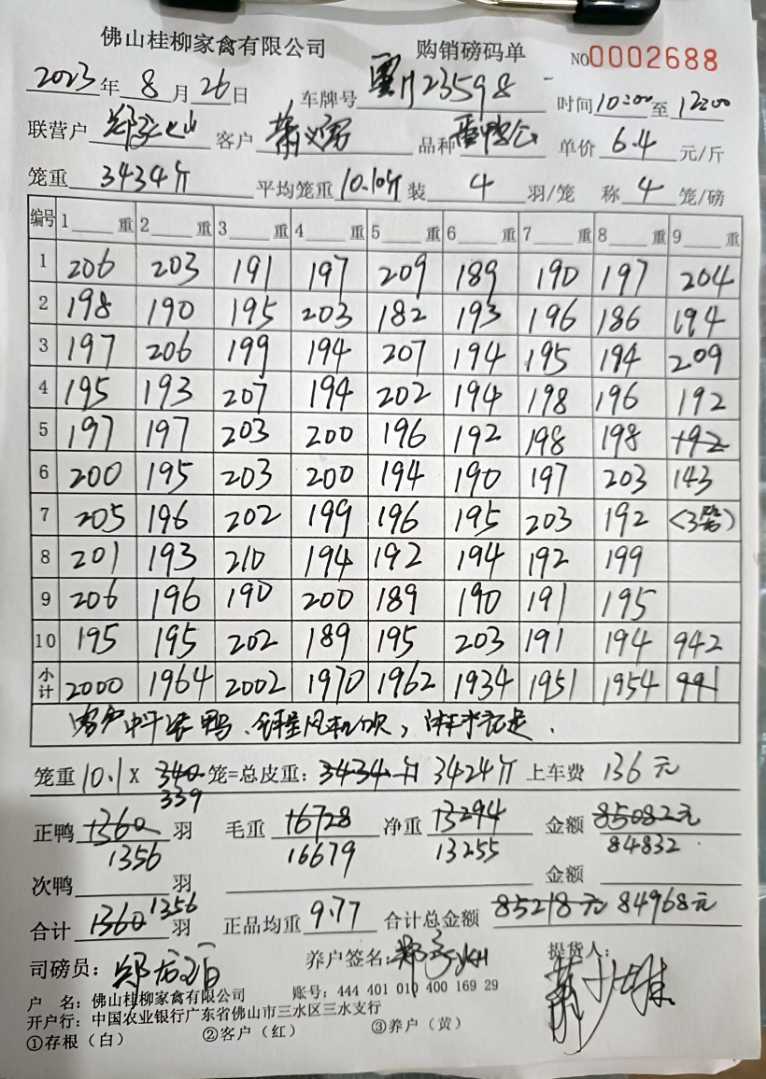 佛山桂柳家禽有限公司 购销磅码单 NO0002688
2023年8月26日 车牌号 23598 时间10:00至12:00
联营户 客户 品种 单价 6.4 元/斤
笼重 3434斤 平均笼重 10.10斤 装 4 羽/笼 称 4 笼/磅
编号 1 重 2 重 3 重 4 重 5 重 6 重 7 重 8 重 9 重
1 206 203 191 197 209 189 190 197 204
2 198 190 195 203 182 193 196 186 194
3 197 206 199 194 207 194 195 194 209
4 195 193 207 194 202 194 198 196 192
5 197 197 203 200 196 192 198 198 192
6 200 195 203 200 194 190 197 203 143
7 205 196 202 199 196 195 203 192 (3笼)
8 201 193 210 194 192 194 192 199
9 206 196 190 200 189 190 191 195
10 195 195 202 189 195 203 191 194 942
小计 2000 1964 2002 1970 1962 1934 1951 1954 991
笼重 10.1 X 340 笼=总皮重: 3434斤 3424斤 上车费 136元
339
正鸭 1360 羽 毛重 16728 净重 13294 金额 85082元
1356 16679 13255 84832
次鸭 羽 金额
合计 1360 1356 羽 正品均重 9.77 合计总金额 85218元 84968元
司磅员: 养户签名: 提货人:
户 名: 佛山桂柳家禽有限公司 账号: 444 401 010 400 169 29
开户行: 中国农业银行广东省佛山市三水区三水支行
①存根(白) ②客户(红) ③养户(黄)